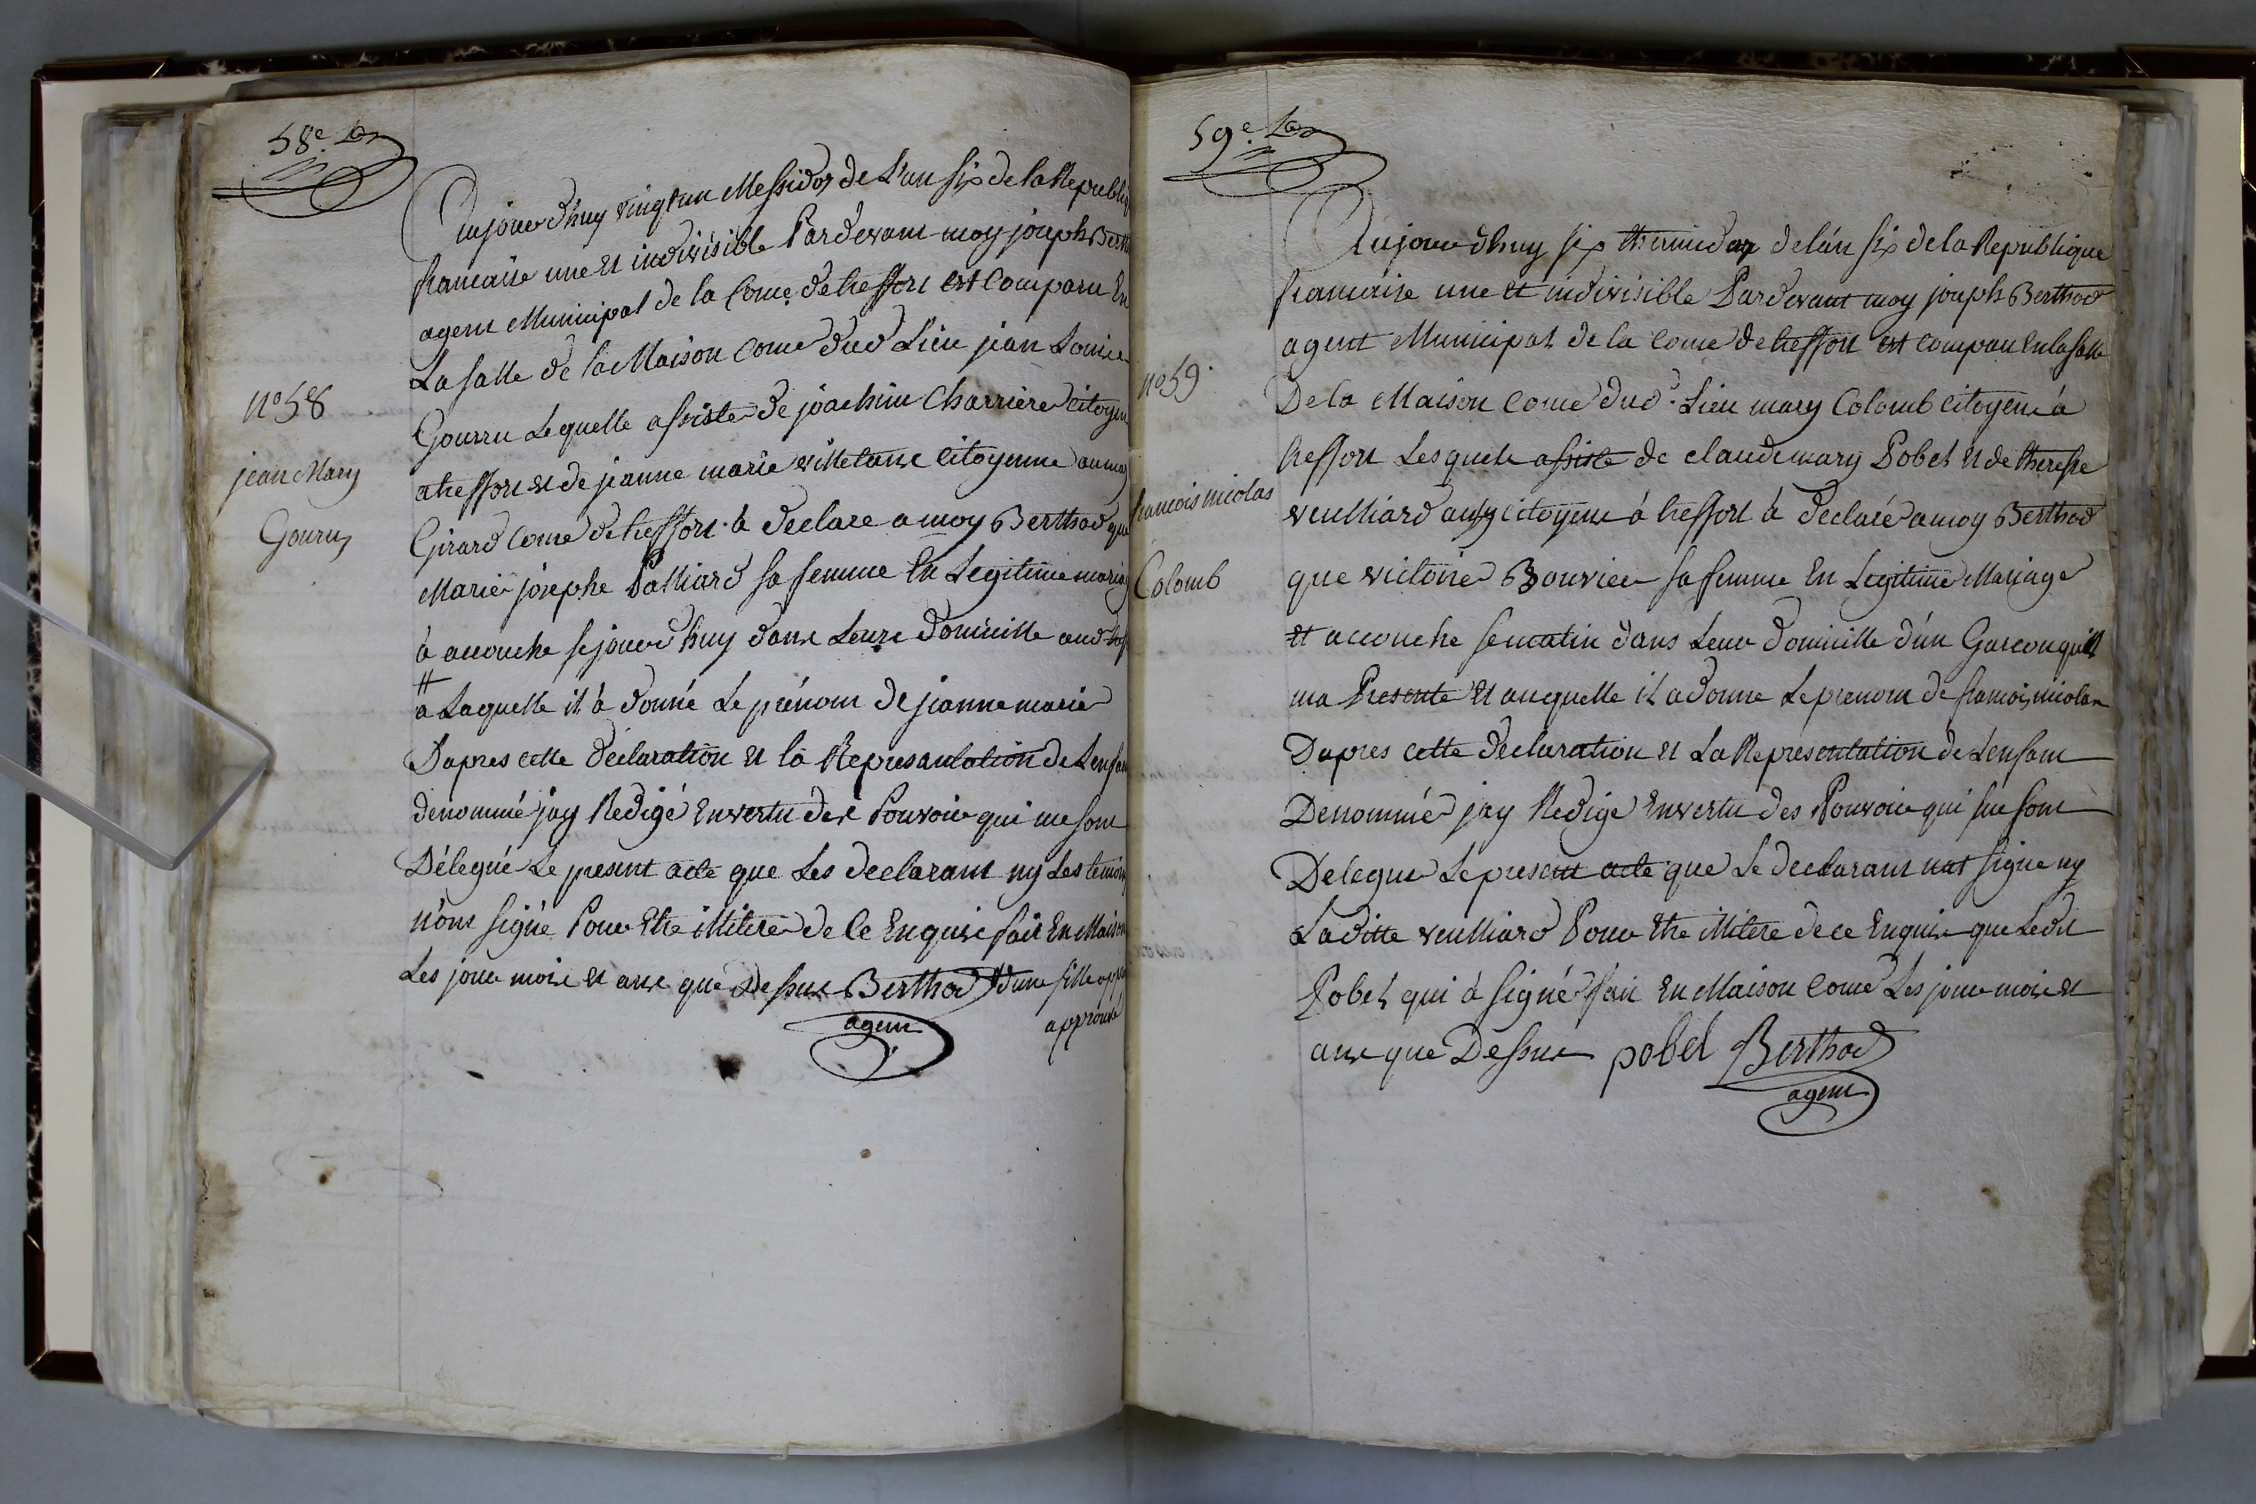 58e
Aujourdhuy vingt un Messidor de L'an six de la Republi
francaise une et indivisible Pardevant moy joseph Berth
agent Municipal de la Come de treffort est Comparu En
La salle de la Maison Come dud Lieu jean Louis
Gourru Lequelle assiste de joachim Charriere Citoyen
a treffort et de jeanne marie villetane Citoyenne au may
Girard Come de treffort à declare a moy Berthod que
Marie josephe Palliard sa femme En Legitime mariag
à acouche sejourdhuy dans Leurs domicille aud tref
#
a Laquelle il à donné Le prénom de jeanne marie
Dapres cette déclaration et la Represantation de Lenfan
dénommé jay Redigé Envertu des Pouvoir qui me sont
Délegué Le present acte que Les declarant ny Les temoin
n'ont signé Pour Etre illitere de Ce Enquis fait En Maison
Les jour mois et ans que dessus Berthod # dune fille
agent approuvé
n° 58
jean Mary
Gourru
59e
Aujourdhuy six thermidor de l'an six de la Republique
francaise une et indivisible Pardevant moy joseph Berthod
agent Municipal de la Come de treffort est comparu En la salle
De la Maison Come dud. Lieu mary Colomb Citoyen à
treffort Lesquele assiste de claude mary Pobel et de therese
veulliard aussy citoyene à treffort à declaré a moy Berthod
que victoire Bouvier sa femme En Legitime Mariage
et accouche se matin dans Leur domicille d'un Garcon quil
ma Presente et auquelle il a donne Le prenom de francois nicolas
Dapres cette déclaration et La Representation de Lenfant
Denommé jay Redigé Envertu des Pouvoir qui me sont
Delegue Le present acte que Le declarant nat signe ny
Laditte veulliard Pour Etre illitere de ce Enquis que Ledit
Pobel qui à signé fait En Maison Come Les jour mois et
ans que Dessus pobel Berthod
agent
n° 59.
francois nicolas
Colomb